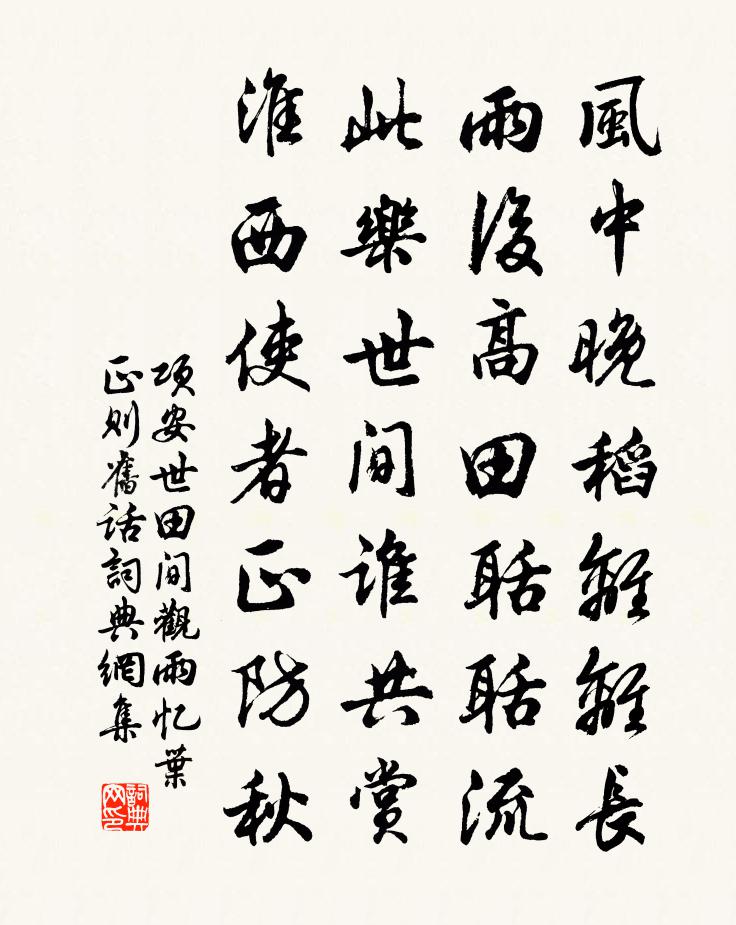 風中晚稻離離長
雨後高田聒聒流
此樂世間誰共賞
淮西使者正防秋
項安世田間觀雨忆葉
正則舊話詞典網集
詞典
网印